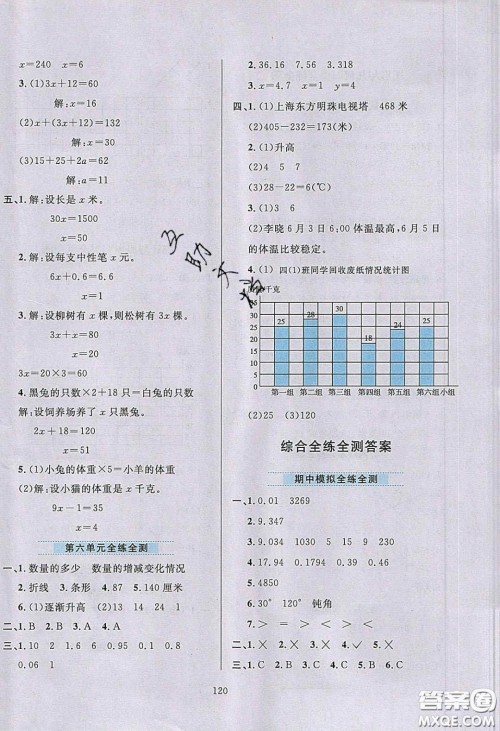 x=240　x=6
3. (1)3x+12=60
解:x=16
(2)x+3x=132
解:x=33
(3)15+25+2a=62
解:a=11
五、1. 解:设长是 x 米。
30x=1500
x=50
2. 解:设每支中性笔 x 元。
6x+0.6=6.6
x=1
3. 解:设柳树有 x 棵,则松树有 3x 棵。
3x-x=20
x=10
3x=20×3=30
4. 黑兔的只数×2+18 只=白兔的只数
解:设饲养场养了 x 只黑兔。
2x+18=
x=
5. (1)小兔的体重×5=小羊的体重
(2)解:设小猫的体重是 x 千克。
9x-1=35
x=4
第六单元全练全测
一、1. 数量的多少　数量的增减变化情况
2. 折线　3. 条形　4. 87　5. 140 厘米
6. (1)逐渐升高　(2)13　14　24
二、1. B　2. B　3. A　4. A
三、10　2　1.1　0.16　0.92　1　0.8
0.06　1
2. 36.16　7.56　3.318
3. x=4.7　x=1　y=4
四、1. (1)上海东方明珠电视塔　468 米
(2)405-232=173(米)
2. (1)升高
(2)4　5
(3)28-22=6(℃)
3. (1)3　6
(2)李晓 6 月 3 日 6:00 体温最高,6 月 5 日
的体温比较稳定。
4. (1) 四(1)班同学回收废纸情况统计图
千克
35
30
25
20
15
10
5
0
25　28　30　18　24　25
第一组　第二组　第三组　第四组　第五组　第六组 小组
(2)25　(3)120
综合全练全测答案
期中模拟全练全测
一、1. 0.01　3269
2. 9.347
3. 0.09　930　1.3　0.038
4. 17.0494　0.1794　0.29
5. 4850
6. 30°　120°　钝角
7. >　<　>　=　<　>
二、1. ✓　2. ✕　3. ✕　4. ✓　5. ✕
三、1. C　2. C　3. B　4. B　5. C
120
答案圈
MXQE.COM